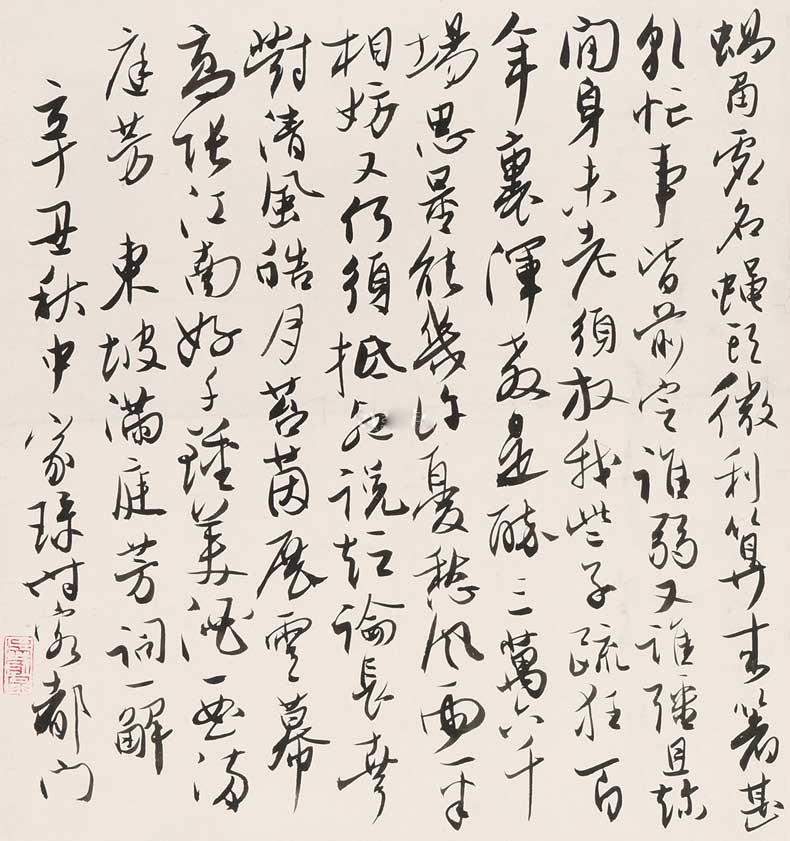 蝸角虛名蠅頭微利算來著甚
乾忙事皆前定誰弱又誰強且趁
閒身未老須放我些子疏狂百
年裏渾教是醉三萬六千
場思量能幾許憂愁風雨一半
相妨又何須抵死說短論長幸
對清風皓月苔茵展雲幕
高張江南好千鍾美酒一曲滿
庭芳 東坡滿庭芳詞一解
辛丑秋中 家琭時客都門